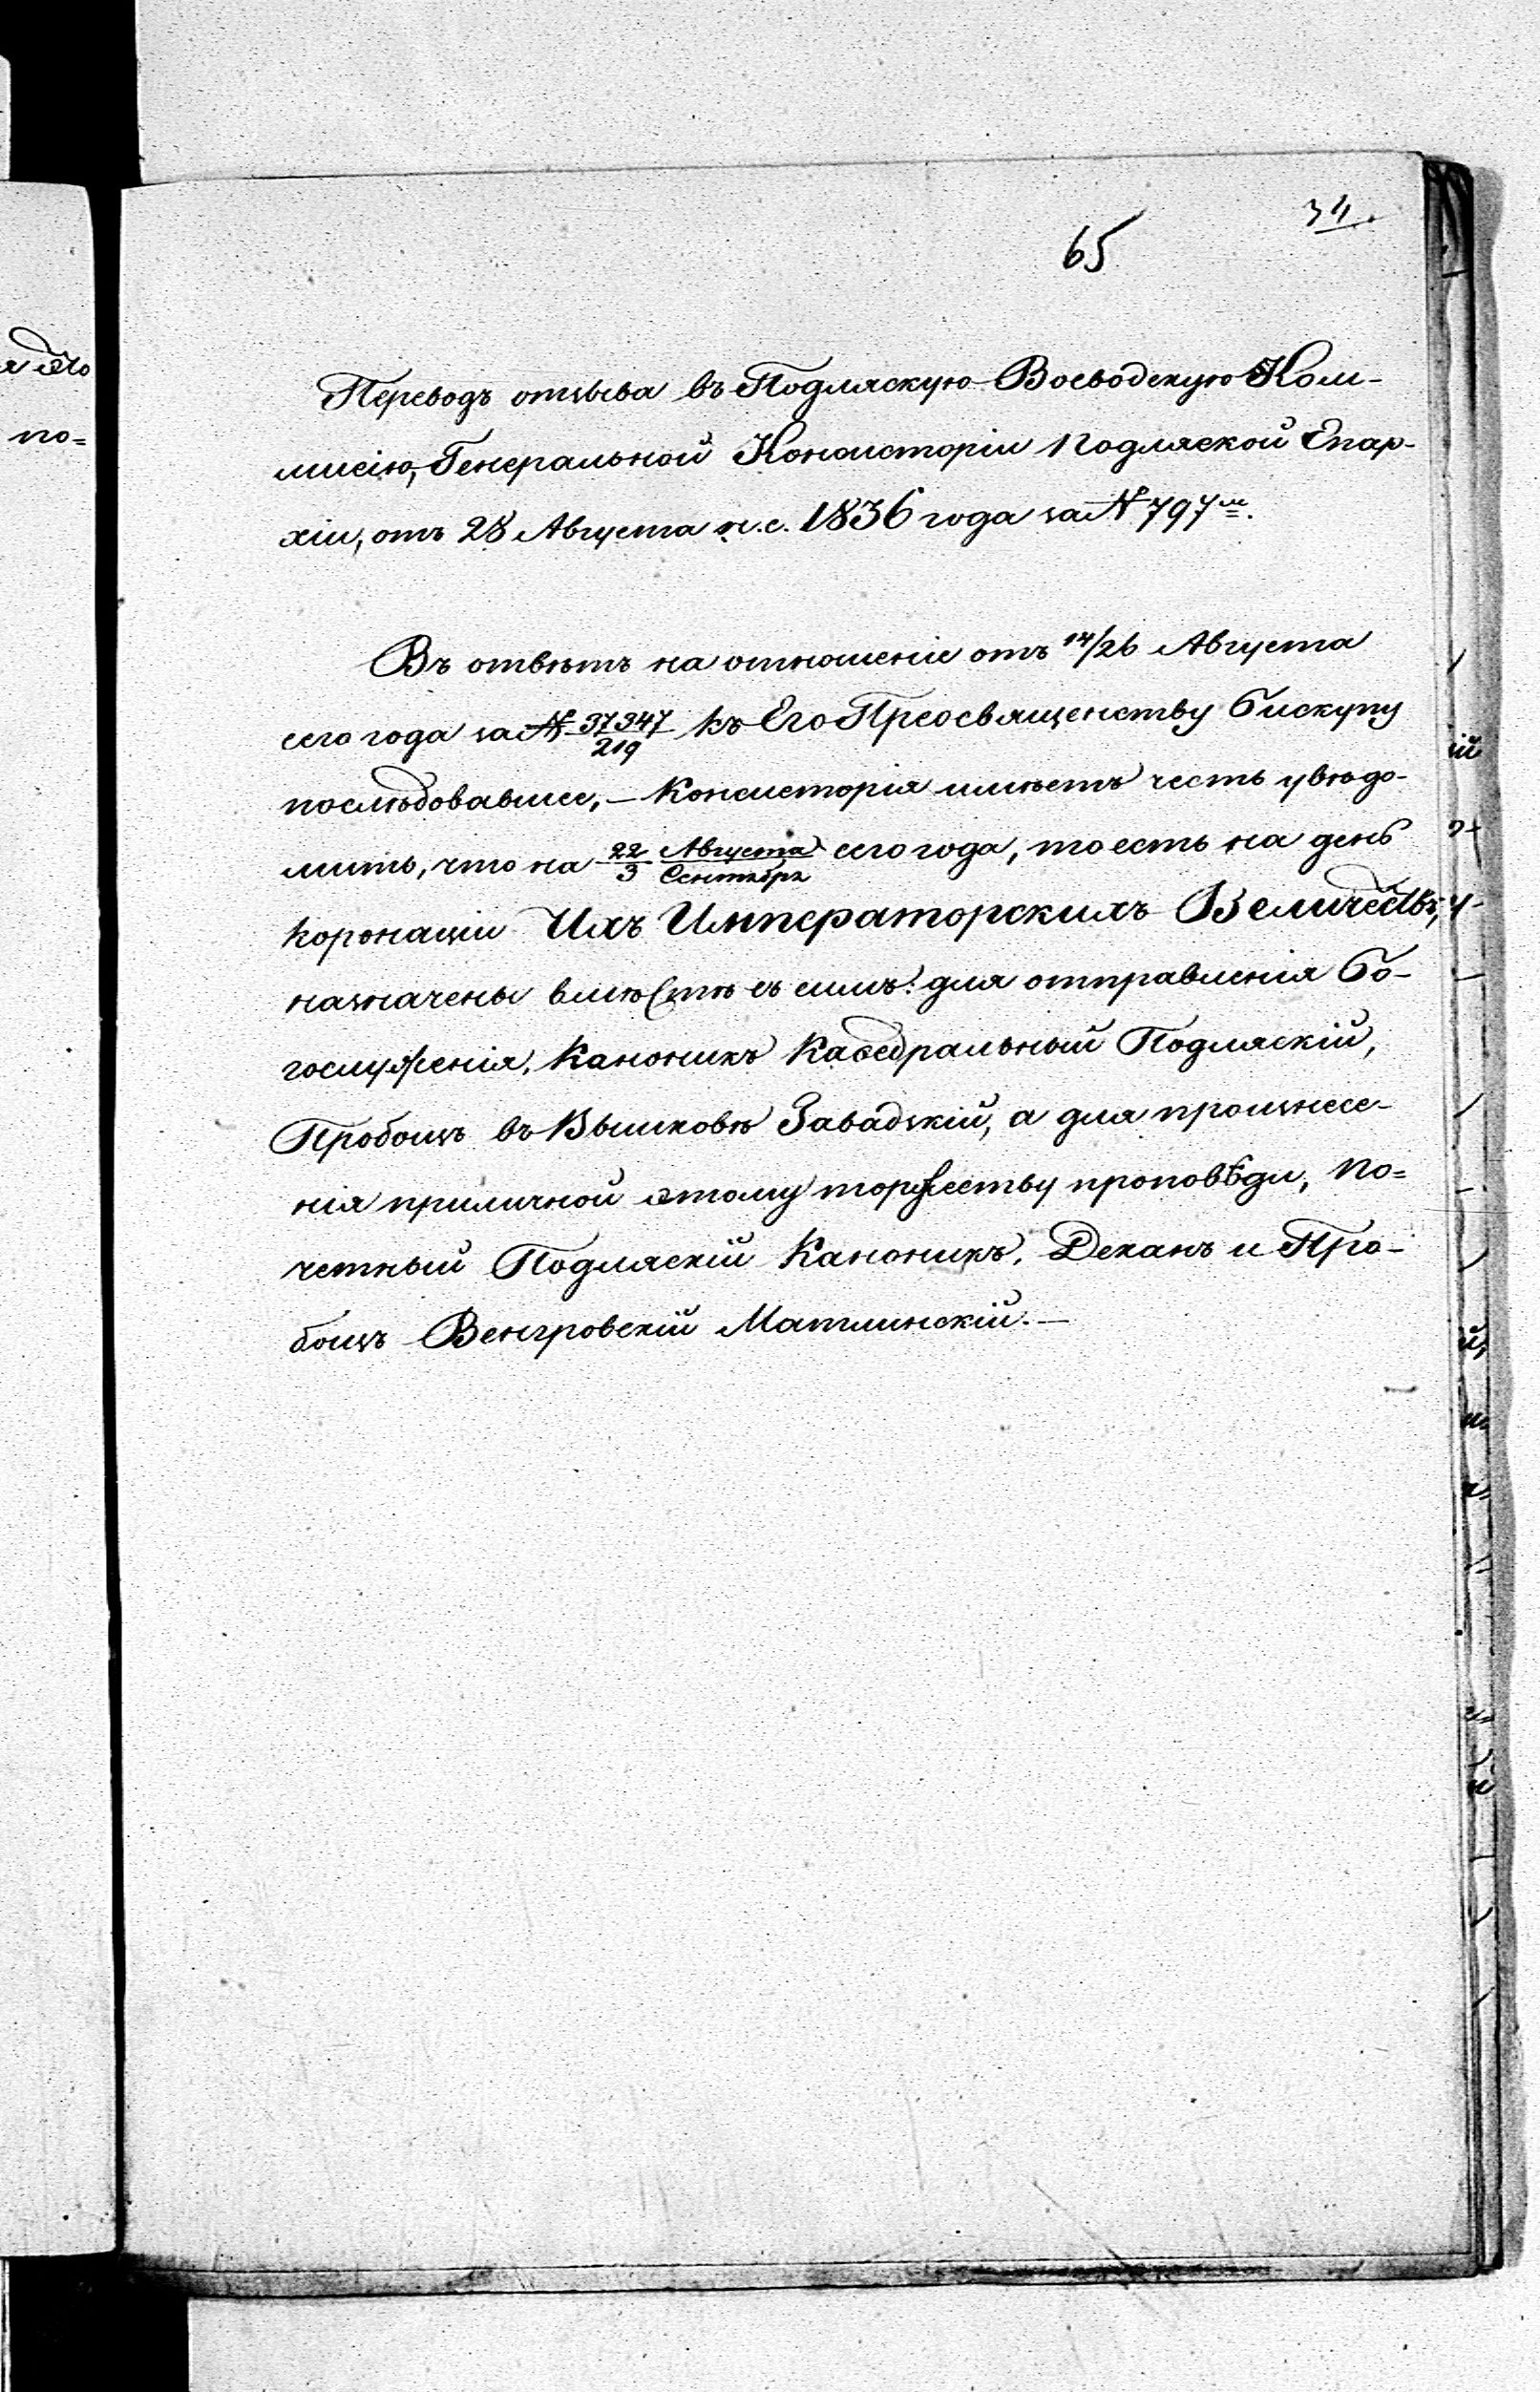 34.
65
Переводъ отзыва въ Подляскую Воеводскую Ком-
мисію, Генеральной Консисторіи Подляской Епар-
хіи, отъ 28 Августа н. с. 1836 года за № 797 м.
Въ отвѣтъ на отношеніе отъ 14/26 Августа
сего года за № 37347/219 къ Его Преосвященству Бискупу
послѣдовавшее, – Консисторія имѣетъ честь увѣдо-
мить, что на 22 Августа/3 Сентября сего года, то есть на день
коронаціи Ихъ Императорскихъ Величествъ,
назначены вмѣстѣ съ симъ: для отправленія Бо-
гослуженія, Каноникъ Каѳедральный Подляскій,
Пробощъ въ Вышковѣ Завадзкій, а для произнесе-
нія приличной этому торжеству проповѣди, По=
четный Подляскій Каноникъ, Деканъ и Про-
бощъ Венгровскій Матлинскій. –
по=